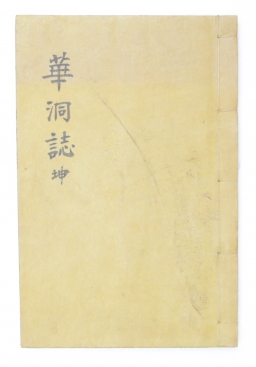 華洞誌 坤